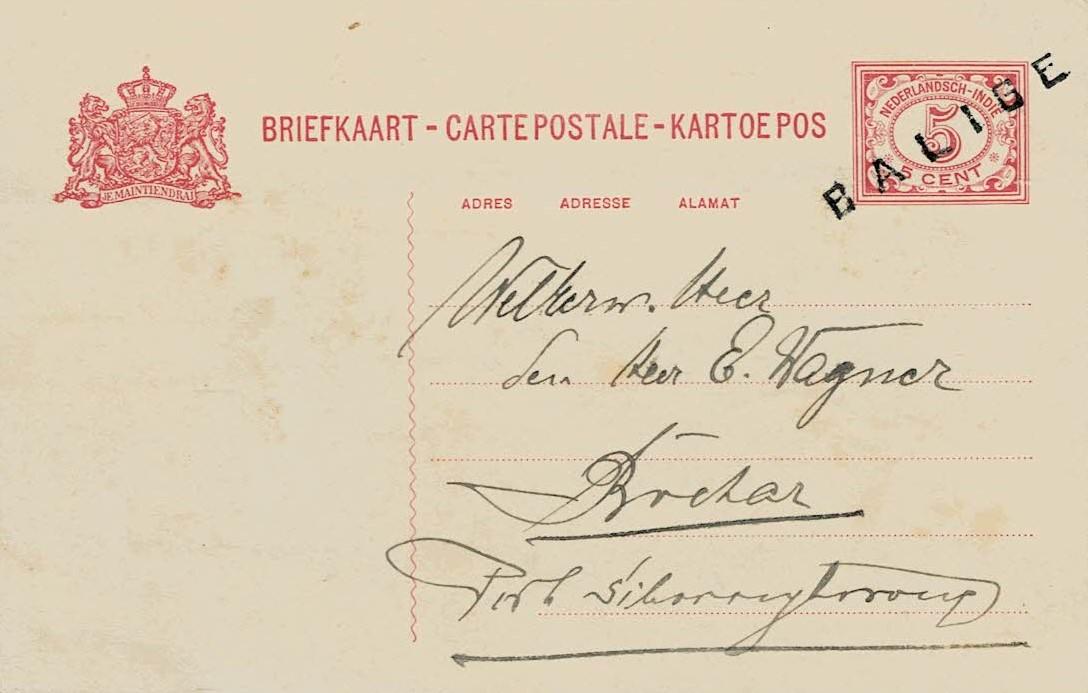 BRIEFKAART - CARTE POSTALE - KARTOE POS
NEDERLANDSCH-INDIË
5
5 CENT
BALIGE
JE MAINTIENDRAI
ADRES ADRESSE ALAMAT
Welkerw. Heer
den Heer E. Wagner
Post Siborongborong